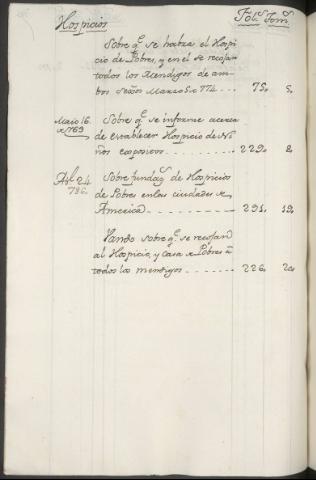 Hospicios
Fols. Tom.
Sobre q.e se habra el Hospi
cio de Pobres, y en el se recojan
todos los Mendigos de am-
bos Sexos Marzo 5. 774 . . . 75. 5.
Maio 16.
769
Sobre q.e se informe acerca
de establecer Hospicio de Ni
ños expositos . . . . . . . . 229. 2.
Ab.l 24
796.
Sobre fundaz.n de Hospicios
de Pobres en las ciudades de
America . . . . . . . . . 291. 19.
Vando sobre q.e se recojan
al Hospicio, y Casa de Pobres
todos los mendigos . . . . . . 226. 20.